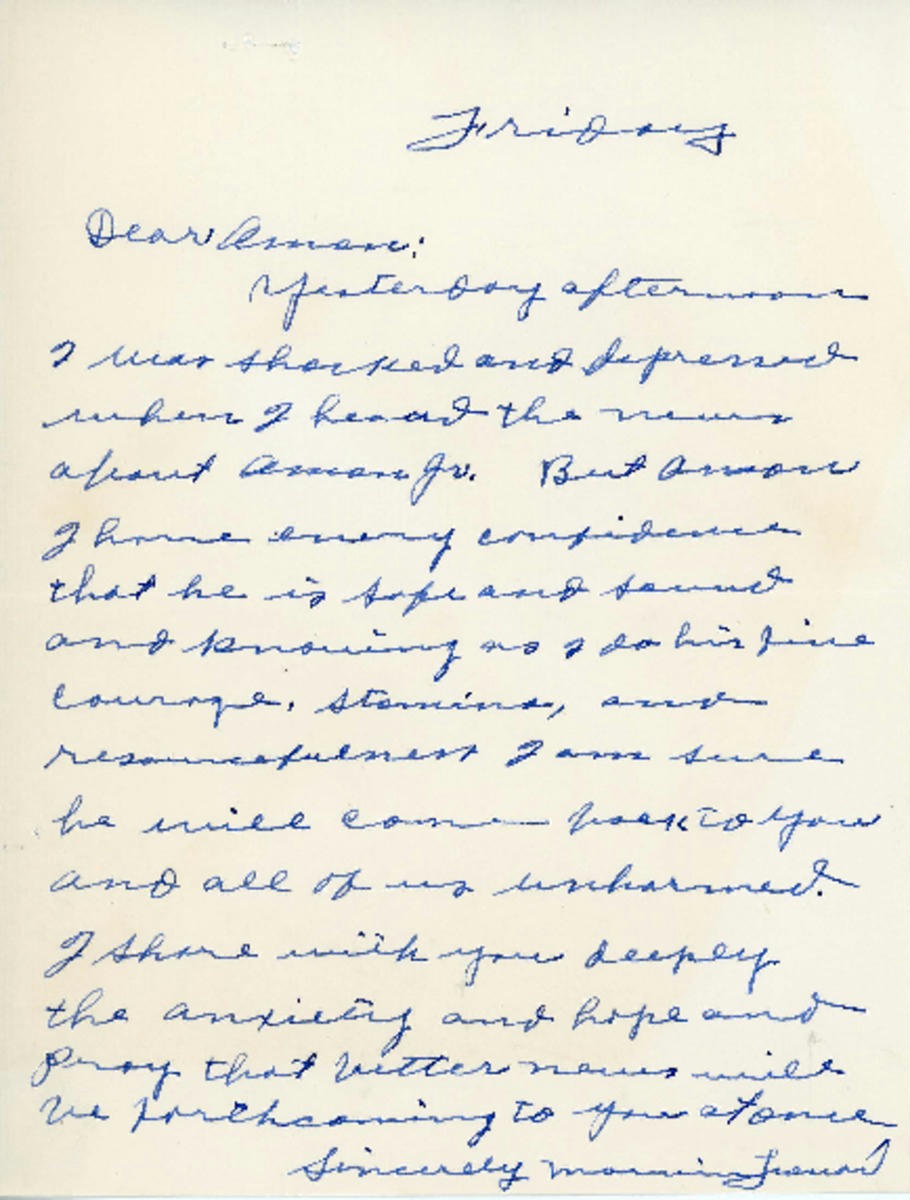 Friday
Dear Amon:
Yesterday afternoon
I was shocked and depressed
when I heard the news
about Amon Jr. But Amon
I have every confidence
that he is safe and sound
and knowing as I do his fine
courage, stamina, and
resourcefulness I am sure
he will come back to you
and all of us unharmed.
I share with you deeply
the anxiety and hope and
pray that better news will
be forthcoming to you at once
Sincerely